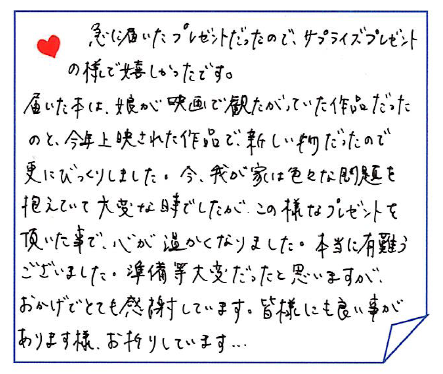 急に届いたプレゼントだったので、サプライズプレゼント
の様で嬉しかったです。
届いた本は、娘が映画で観たがっていた作品だった
のと、今年上映された作品で、新しい物だったので
更にびっくりしました。今、我が家は色々な問題を
抱えていて大変な時でしたが、この様なプレゼントを
頂いた事で、心が温かくなりました。本当に有難う
ございました。準備等大変だったと思いますが、
おかげでとても感謝しています。皆様にも良い事が
あります様、お祈りしています…